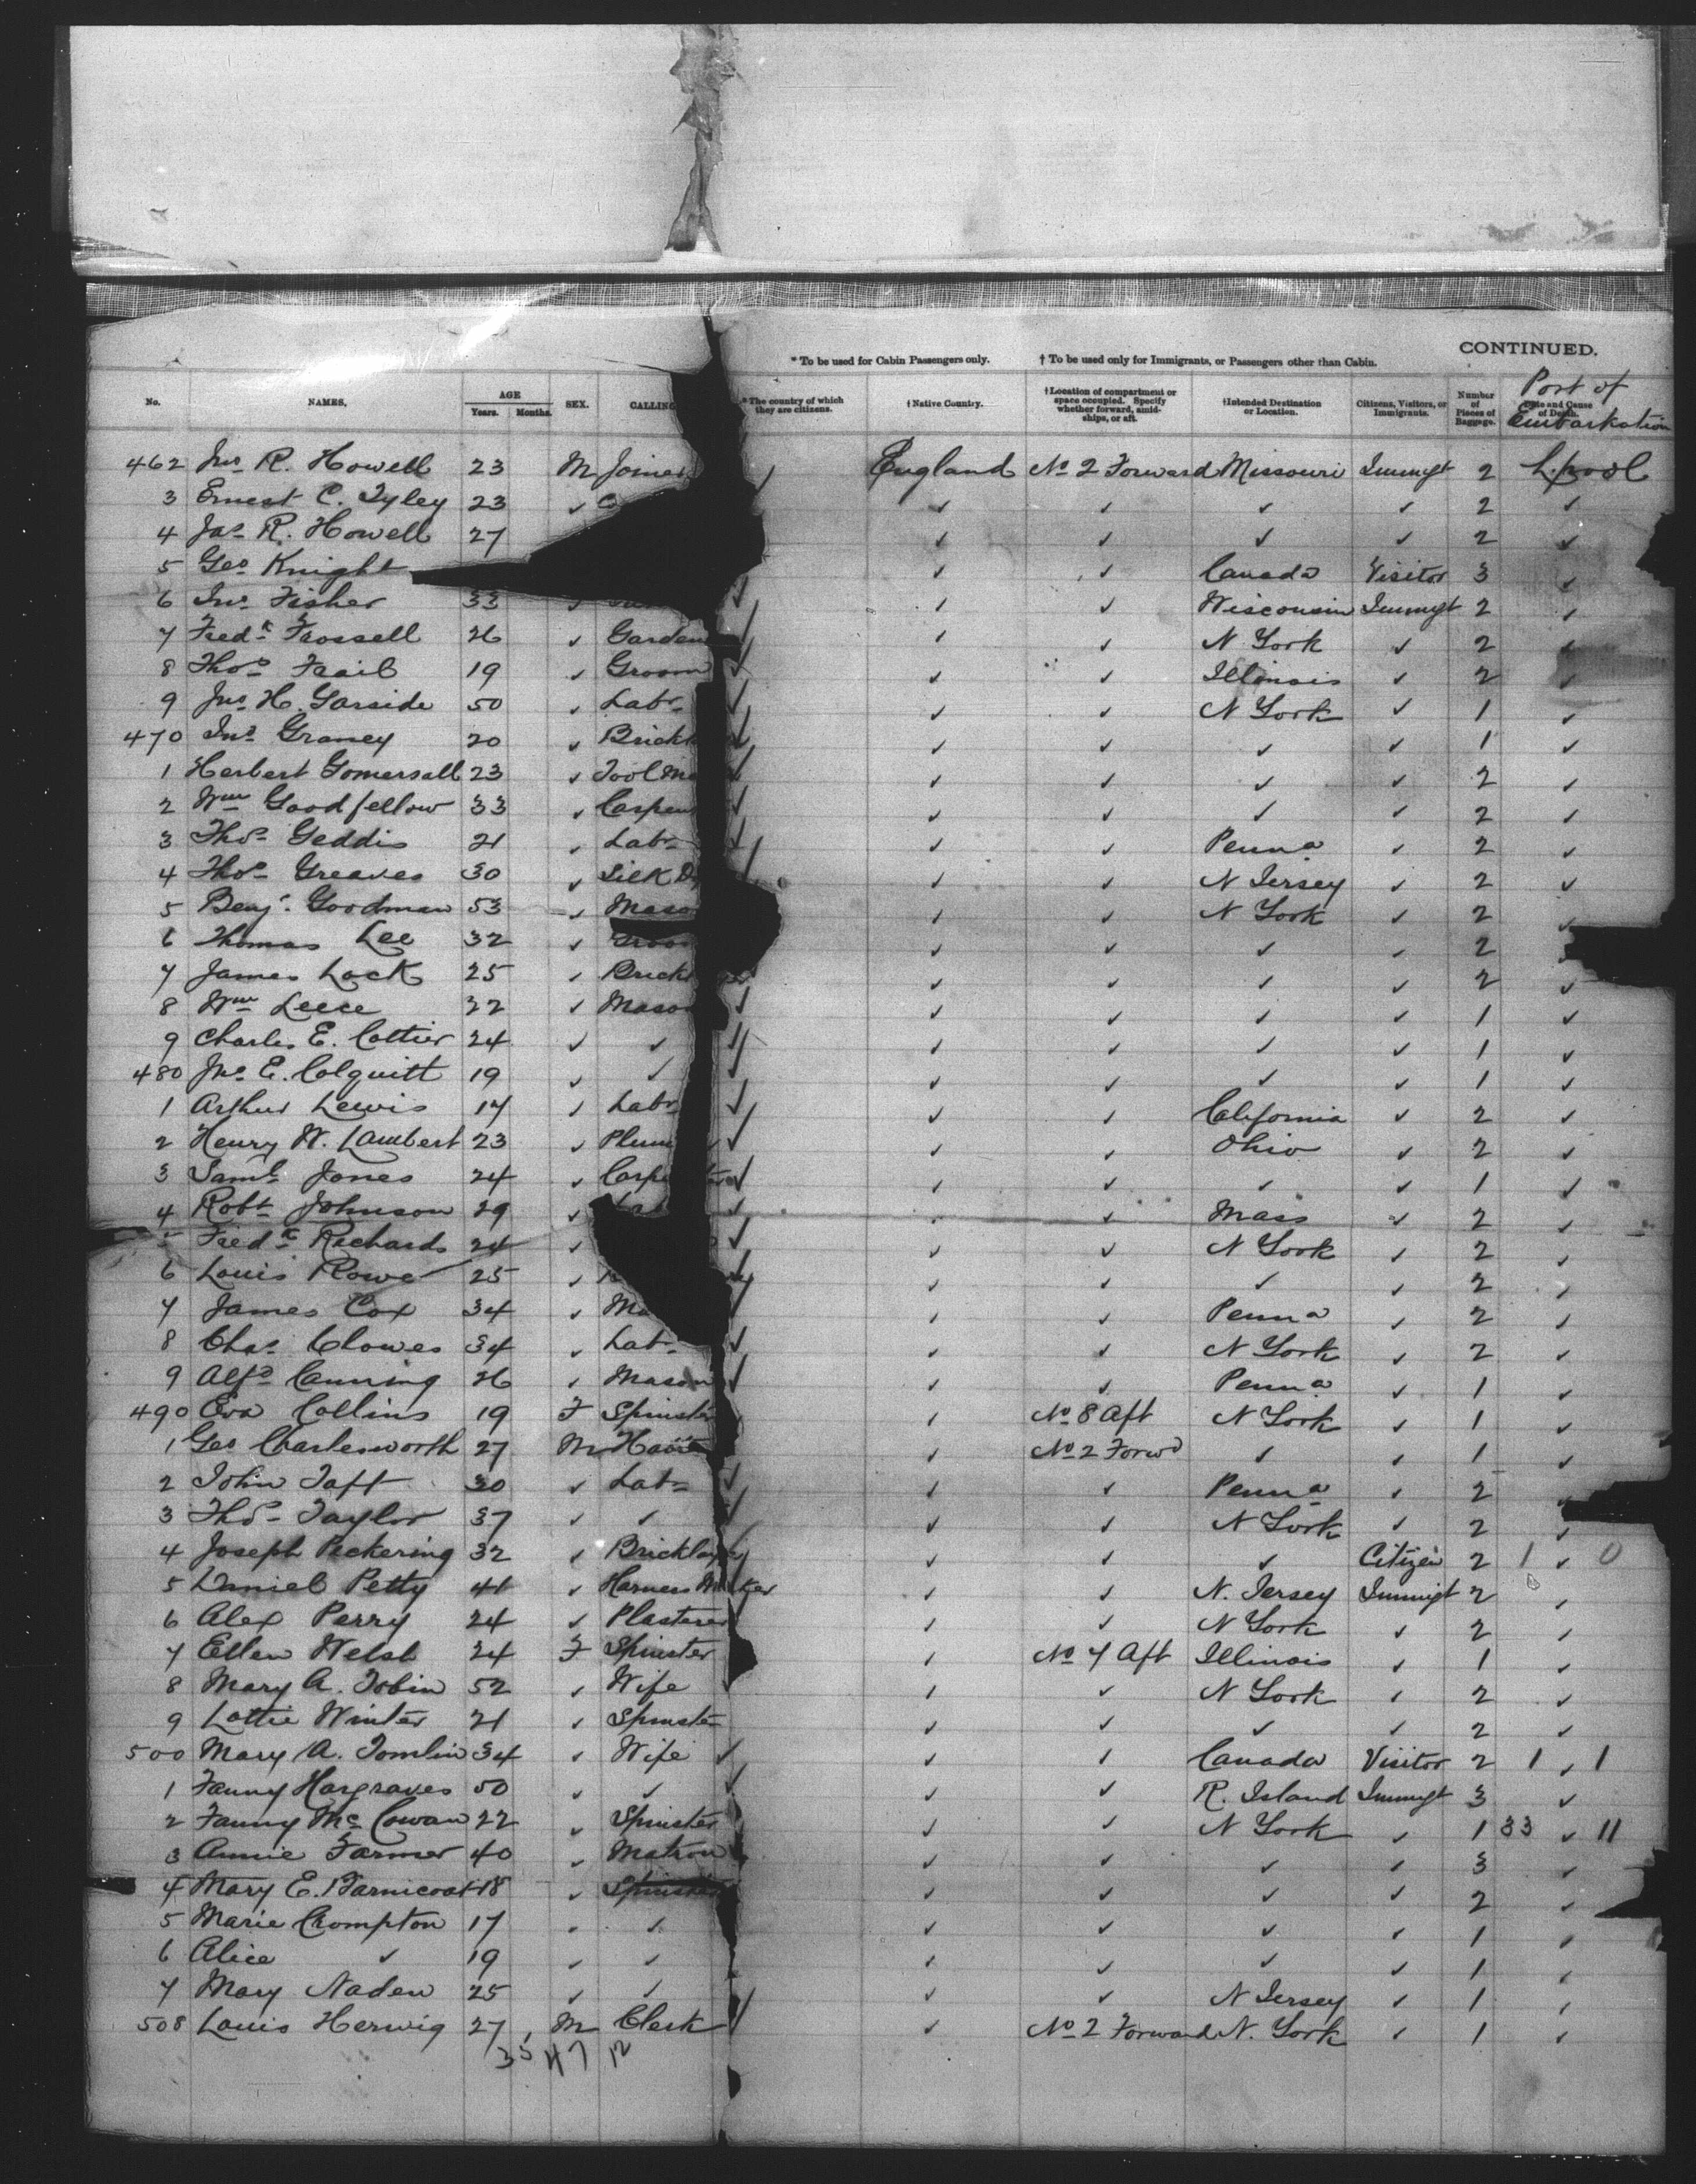 CONTINUED.
* To be used for Cabin Passengers only. † To be used only for Immigrants, or Passengers other than Cabin.
No. NAMES. AGE Years. Months. SEX. CALLING * The country of which they are citizens. † Native Country. † Location of compartment or space occupied. Specify whether forward, amidships, or aft. † Intended Destination or Location. Citizens, Visitors, or Immigrants. Number of Pieces of Baggage. Date and Cause of Death. Port of Embarkation
462 Jno R. Howell 23 M Joiner ✓ England No 2 Forward Missouri Immigt 2 L.pool
3 Ernest C. Tyley 23 ✓ C ✓ ✓ ✓ ✓ 2 ✓
4 Jas R. Howell 27 ✓ ✓ ✓ ✓ 2 ✓
5 Geo Knight ✓ ✓ Canada Visitor 3 ✓
6 Jno Fisher 33 ✓ ✓ ✓ ✓ Wisconsin Immigt 2 ✓
7 Fredk Frossell 26 ✓ Garden ✓ ✓ ✓ N York ✓ 2 ✓
8 Thos Frail 19 ✓ Groom ✓ ✓ ✓ Illinois ✓ 2 ✓
9 Jno H. Garside 50 ✓ Labr ✓ ✓ ✓ N York ✓ 1 ✓
470 Jno Graney 20 ✓ Brickl ✓ ✓ ✓ ✓ ✓ 1 ✓
1 Herbert Gomersall 23 ✓ Tool Ma ✓ ✓ ✓ ✓ ✓ 2 ✓
2 Wm Goodfellow 33 ✓ Carpen ✓ ✓ ✓ ✓ ✓ 2 ✓
3 Thos Geddis 21 ✓ Labr ✓ ✓ ✓ Penna ✓ 2 ✓
4 Thos Greaves 30 ✓ Silk Dy ✓ ✓ ✓ N Jersey ✓ 2 ✓
5 Benj. Goodman 53 ✓ Maso ✓ ✓ N York ✓ 2 ✓
6 Thomas Lee 32 ✓ Groo ✓ ✓ ✓ ✓ 2
7 James Lock 25 ✓ Brickl ✓ ✓ ✓ ✓ 2 ✓
8 Wm Leece 22 ✓ Maso ✓ ✓ ✓ ✓ ✓ 1 ✓
9 Charles E. Cottier 24 ✓ ✓ ✓ ✓ ✓ ✓ ✓ 1 ✓
480 Jno E. Colquitt 19 ✓ ✓ ✓ ✓ ✓ ✓ ✓ 1 ✓
1 Arthur Lewis 17 ✓ Labr ✓ ✓ ✓ California ✓ 2 ✓
2 Henry W. Lambert 23 ✓ Plum ✓ ✓ ✓ Ohio ✓ 2 ✓
3 Saml Jones 24 ✓ Carpe ✓ ✓ ✓ ✓ ✓ 1 ✓
4 Robt Johnson 29 ✓ La ✓ ✓ ✓ Mass ✓ 2 ✓
5 Fredk Richards 24 ✓ ✓ ✓ ✓ N York ✓ 2 ✓
6 Louis Rowe 25 ✓ ✓ ✓ ✓ ✓ 2 ✓
7 James Cox 34 ✓ Ma ✓ ✓ ✓ Penna ✓ 2 ✓
8 Chas Clowes 34 ✓ Labr ✓ ✓ ✓ N York ✓ 2 ✓
9 Alfd Canning 26 ✓ Mason ✓ ✓ ✓ Penna ✓ 1 ✓
490 Eva Collins 19 F Spinster ✓ No 8 Aft N York ✓ 1 ✓
1 Geo Charlesworth 27 M ✓ No 2 Forwd ✓ ✓ 1 ✓
2 John Taft 30 ✓ Labr ✓ ✓ ✓ Penna ✓ 2 ✓
3 Thos Taylor 37 ✓ ✓ ✓ ✓ ✓ N York ✓ 2 ✓
4 Joseph Pickering 32 ✓ Bricklaye ✓ ✓ ✓ ✓ Citizen 2 1 ✓ 0
5 Daniel Petty 41 ✓ Harness Maker ✓ ✓ N. Jersey Immigt 2 ✓
6 Alex Perry 24 ✓ Plasterer ✓ ✓ N York ✓ 2 ✓
7 Ellen Welsh 24 F Spinster ✓ No 7 Aft Illinois ✓ 1 ✓
8 Mary A. Tobin 52 ✓ Wife ✓ ✓ ✓ N York ✓ 2 ✓
9 Lottie Winter 21 ✓ Spinster ✓ ✓ ✓ ✓ 2 ✓
500 Mary A. Tomlin 34 ✓ Wife ✓ ✓ ✓ Canada Visitor 2 1 ✓ 1
1 Fanny Hargraves 50 ✓ ✓ ✓ ✓ ✓ R. Island Immigt 3 ✓
2 Fanny McCowan 22 ✓ Spinster ✓ ✓ N York ✓ 1 33 ✓ 11
3 Annie Farmer 40 ✓ Matron ✓ ✓ ✓ ✓ 3 ✓
4 Mary E. Barnicoat 18 ✓ Spinster ✓ ✓ ✓ ✓ 2 ✓
5 Marie Crompton 17 ✓ ✓ ✓ ✓ ✓ ✓ 1 ✓
6 Alice ✓ 19 ✓ ✓ ✓ ✓ ✓ ✓ 1 ✓
7 Mary Naden 25 ✓ ✓ ✓ ✓ N Jersey ✓ 1 ✓
508 Louis Herwig 27 M Clerk ✓ ✓ No 2 Forward N. York ✓ 1 ✓
35 47 12